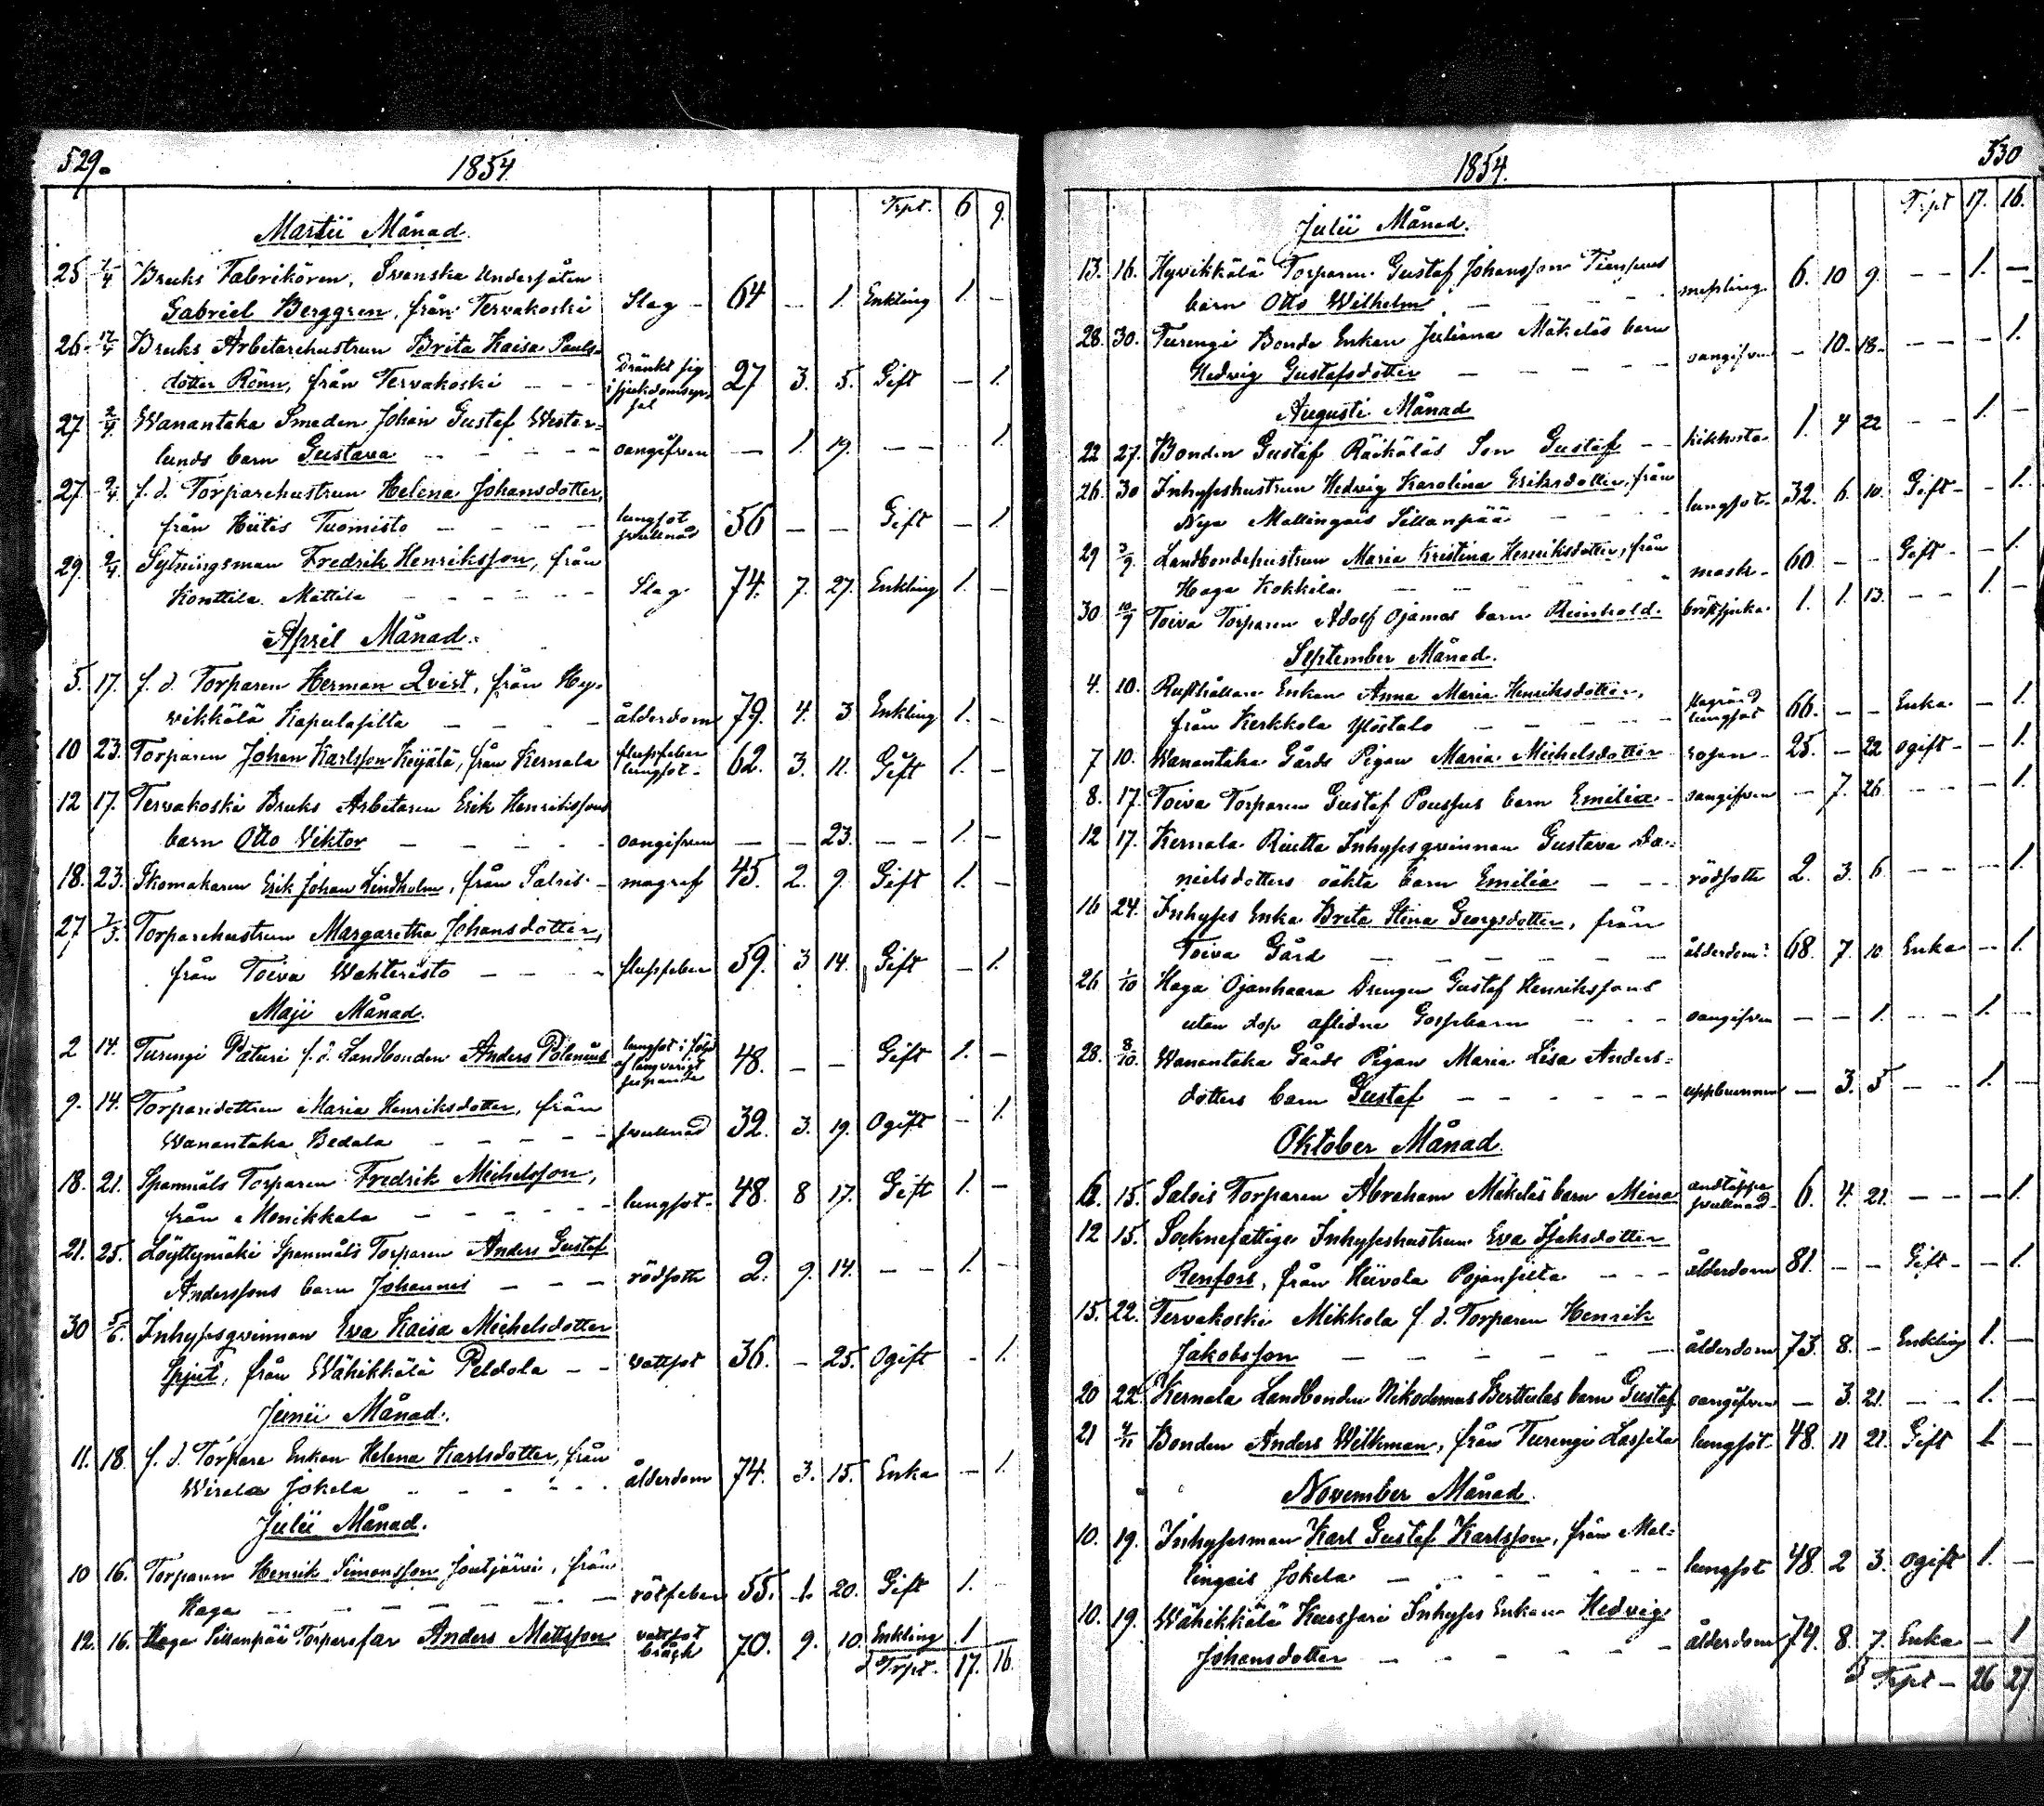 529.
1854.
Trpt. 6 9.
Martii Månad.
25 1/4 Bruks Fabrikören, Svenska Undersåten
Gabriel Berggren, från Tervakoski Slag - 64 - 1. Enkling 1. -
26 17/4 Bruks Arbetarehustrun Brita Kaisa Pauls-
dotter Rönn, från Tervakoski - - Dränkt sig i sjukdomsyr. 27 3. 5. Gift - 1.
27 2/4 Wanantaka Smeden Johan Gustaf Wester-
lunds barn Gustava - - - oangifven - 1. 19. - - 1.
27 2/4 f. d. Torparehustrun Helena Johansdotter,
från Hiitis Tuomisto - - - lungsot svullnad 56 - - Gift - 1.
29. 2/4. Sytningsman Fredrik Henriksson, från
Konttila Mattila - - - Slag 74. 7. 27. Enkling 1. -
April Månad.
5. 17. f. d. Torparen Herman Qvist, från Hy-
vikkälä Kapulasilta - - - ålderdom 79. 4. 3 Enkling 1. -
10 23. Torparen Johan Karlsson Köijälä, från Kernala flussfeber lungsot - 62. 3. 11. Gift 1. -
12 17. Tervakoski Bruks Arbetaren Erik Henrikssons
barn Otto Viktor - - - oangifven - - 23. - - 1. -
18. 23. Skomakaren Erik Johan Lindholm, från Salois - magref 45. 2. 9. Gift 1. -
27 7/5. Torparehustrun Margaretha Johansdotter,
från Toiva Wahteristo - - - flussfeber 59. 3 14. Gift - 1.
Maji Månad.
2 14. Turengi Paturi f. d. Landbonden Anders Polenius lungsot i följd af långvarigt 48. - - Gift 1. -
9. 14. Torparedottren Maria Henriksdotter, från
Wanantaka Bedala - - - svullnad 32. 3. 19. Ogift - 1.
18. 21. Spanmåls Torparen Fredrik Michelsson,
från Monikkala - - - lungsot - 48. 8 17. Gift 1. -
21. 25. Löyttymäki Spanmåls Torparen Anders Gustaf
Anderssons barn Johannes - - - rödsoth 2. 9. 14. - - 1. -
30 5/6. Inhysesqvinnan Eva Kaisa Michelsdotter
Spjut, från Wähikkälä Peldola - - wattsot 36. - 25. Ogift - 1.
Junii Månad.
11. 18. f. d. Torpare Enkan Helena Karlsdotter, från
Wirala Jokela - - - ålderdom 74. 3. 15. Enka - 1.
Julii Månad.
10 16. Torparen Henrik Simonsson Joutjärvi, från
Haga - - - rötfeber 55. 1. 20. Gift 1.
12. 16. Haga Sillanpää Torparefar Anders Mattsson vattsot bråck 70. 9. 10. Enkling 1
Trpt. 17. 16.
530
1854.
Trpt 17. 16.
Julii Månad.
13. 16. Hyvikkälä Torparen Gustaf Johansson
barn Otto Wilhelm - - - messling 6. 10 9. - - 1. -
28. 30. Turengi Bonde Enkan Juliana Mäkeläs barn
Hedvig Gustafsdotter - - - oangifven - 10. 18. - - - 1.
Augusti Månad
22 27. Bonden Gustaf Räikäläs Son Gustaf - - kikhosta 1. 4 22 - - 1. -
26. 30 Inhyseshustrun Hedvig Karolina Eriksdotter, från
Nya Mallingais Sillanpää - - - lungsot - 32. 6. 10. Gift - - 1.
29 3/9 Landbondehustrun Maria Kristina Henriksdotter, från
Haga Kokkila - - - mask - 60. - - Gift - - 1.
30 10/9 Toiva Torparen Adolf Ojamas barn Reinhold. bröstsjuka. 1. 1. 13. - - 1. -
September Månad.
4. 10. Rusthållare Enkan Anna Maria Henriksdotter,
från Kerkkola Ylöstalo - - - lungsot 66. - - Enka. - 1.
7 10. Wanantaka Gårds Pigan Maria Michelsdotter rosen - 25. - 22 ogift - - 1.
8. 17. Toiva Torparen Gustaf barn Emilia - oangifven - 7. 26. - - - 1.
12 17. Kernala Riutta Inhysesqvinnan Gustava Da-
nielsdotters oäkta barn Emilia - - - rödsoth 2. 3. 6. - - - 1.
16 24. Inhyses Enka Brita Stina Georgsdotter, från
Toiva Gård - - - ålderdom 68. 7. 10. Enka - - 1.
26 1/10 Haga Ojanhaara Drengen Gustaf Henrikssons
utan dop aflidne Gossebarn - - - oangifven - - 1. - - 1. -
28. 8/10. Wanantaka Gårds Pigan Maria Lisa Anders-
dotters barn Gustaf - - - uppbrunnen - 3. 5 - - 1. -
Oktober Månad.
6. 15. Salois Torparen Abraham Mäkeläs barn Mina andtäppa svullnad - 6. 4. 21. - - - 1.
12 15. Socknefattige Inhyseshustrun Eva Isaksdotter
Renfors, från Hiivola Pojansilta - - - ålderdom 81. - - Gift - - 1.
15. 22. Tervakoski Mikkola f. d. Torparen Henrik
Jakobsson - - - ålderdom 73. 8. - Enkling 1. -
20 22. Kernala Landbonden Nikodemus Berttulas barn Gustaf oangifven - 3. 21. - - 1. -
21 4/11 Bonden Anders Wilkman, från Turengi Lassila lungsot 48. 11 21. Gift 1 -
November Månad.
10. 19. Inhysesman Karl Gustaf Karlsson, från Mal-
lingais Jokela - - - lungsot 48. 2 3. ogift 1. -
10. 19. Wähikkälä Kuussari Inhyses Enkan Hedvig
Johansdotter - - - ålderdom 74. 8. 7. Enka - 1
Trpt - 26 27